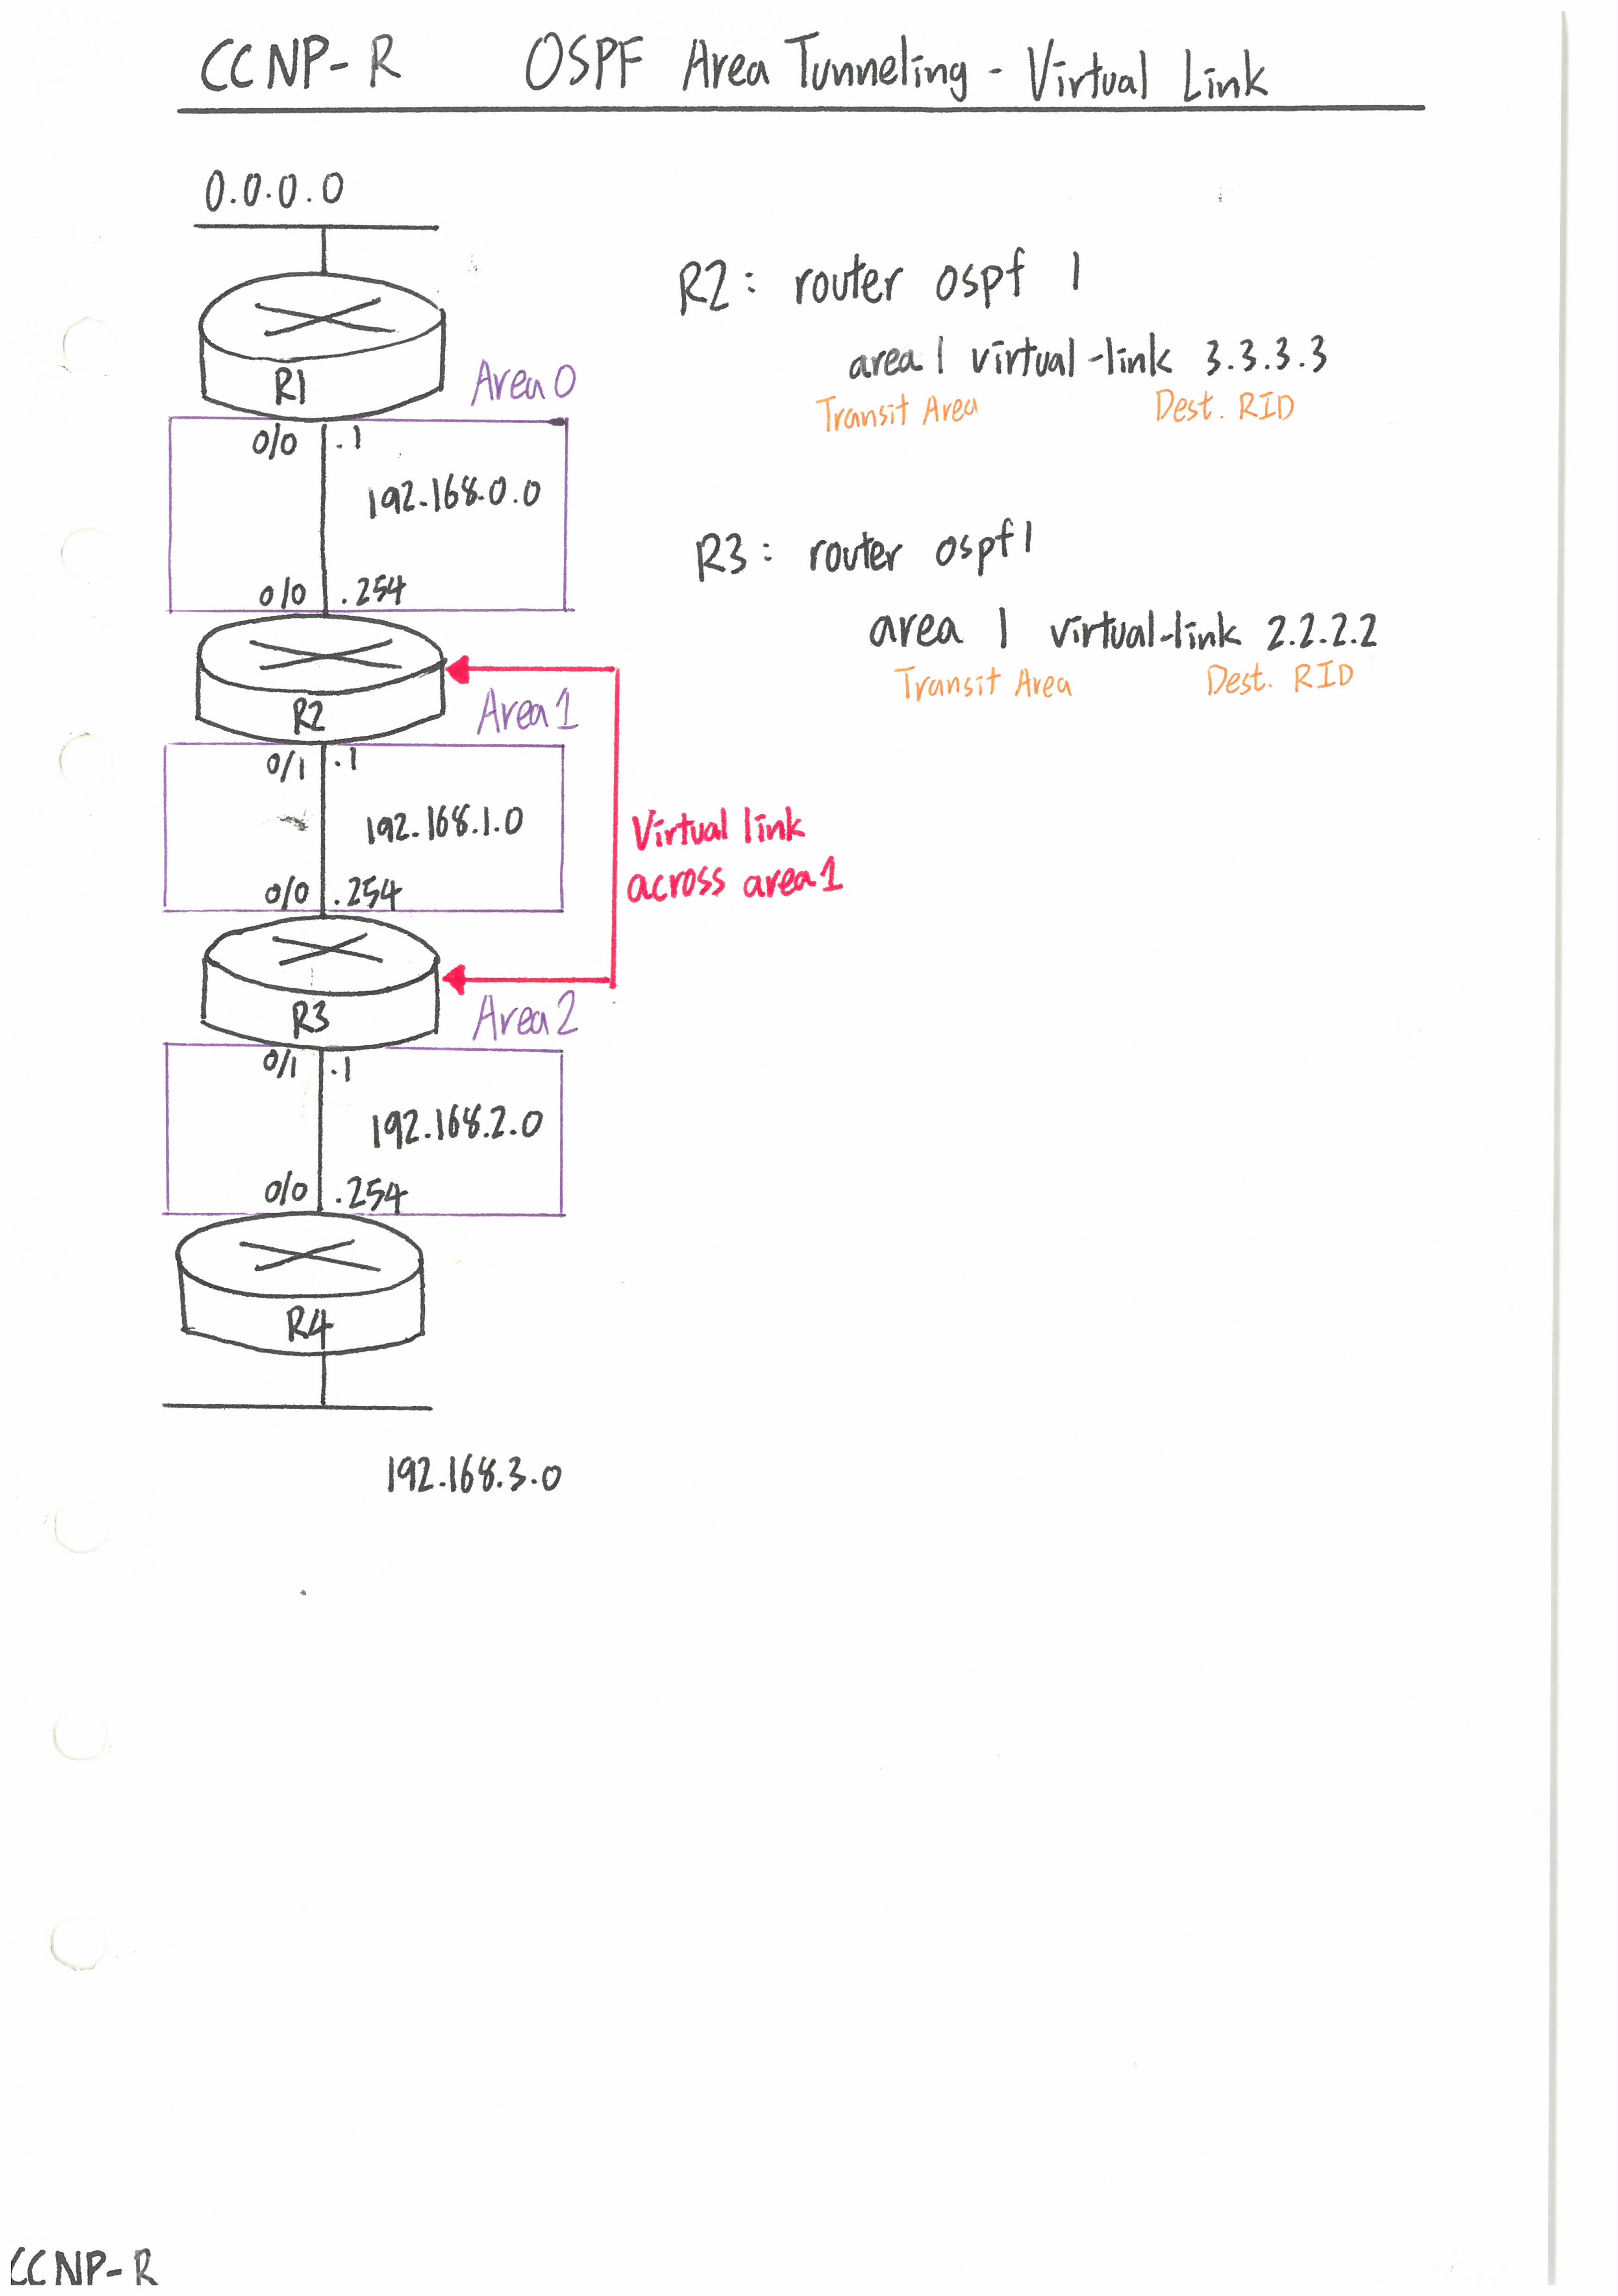 CCNP-R OSPF Area Tunneling - Virtual Link
0.0.0.0
R1
Area 0
0/0 .1
192.168.0.0
0/0 .254
R2
Area 1
0/1 .1
192.168.1.0
0/0 .254
Virtual link
across area 1
R3
Area 2
0/1 .1
192.168.2.0
0/0 .254
R4
192.168.3.0
R2: router ospf 1
area 1 virtual-link 3.3.3.3
Transit Area Dest. RID
R3: router ospf 1
area 1 virtual-link 2.2.2.2
Transit Area Dest. RID
CCNP-R